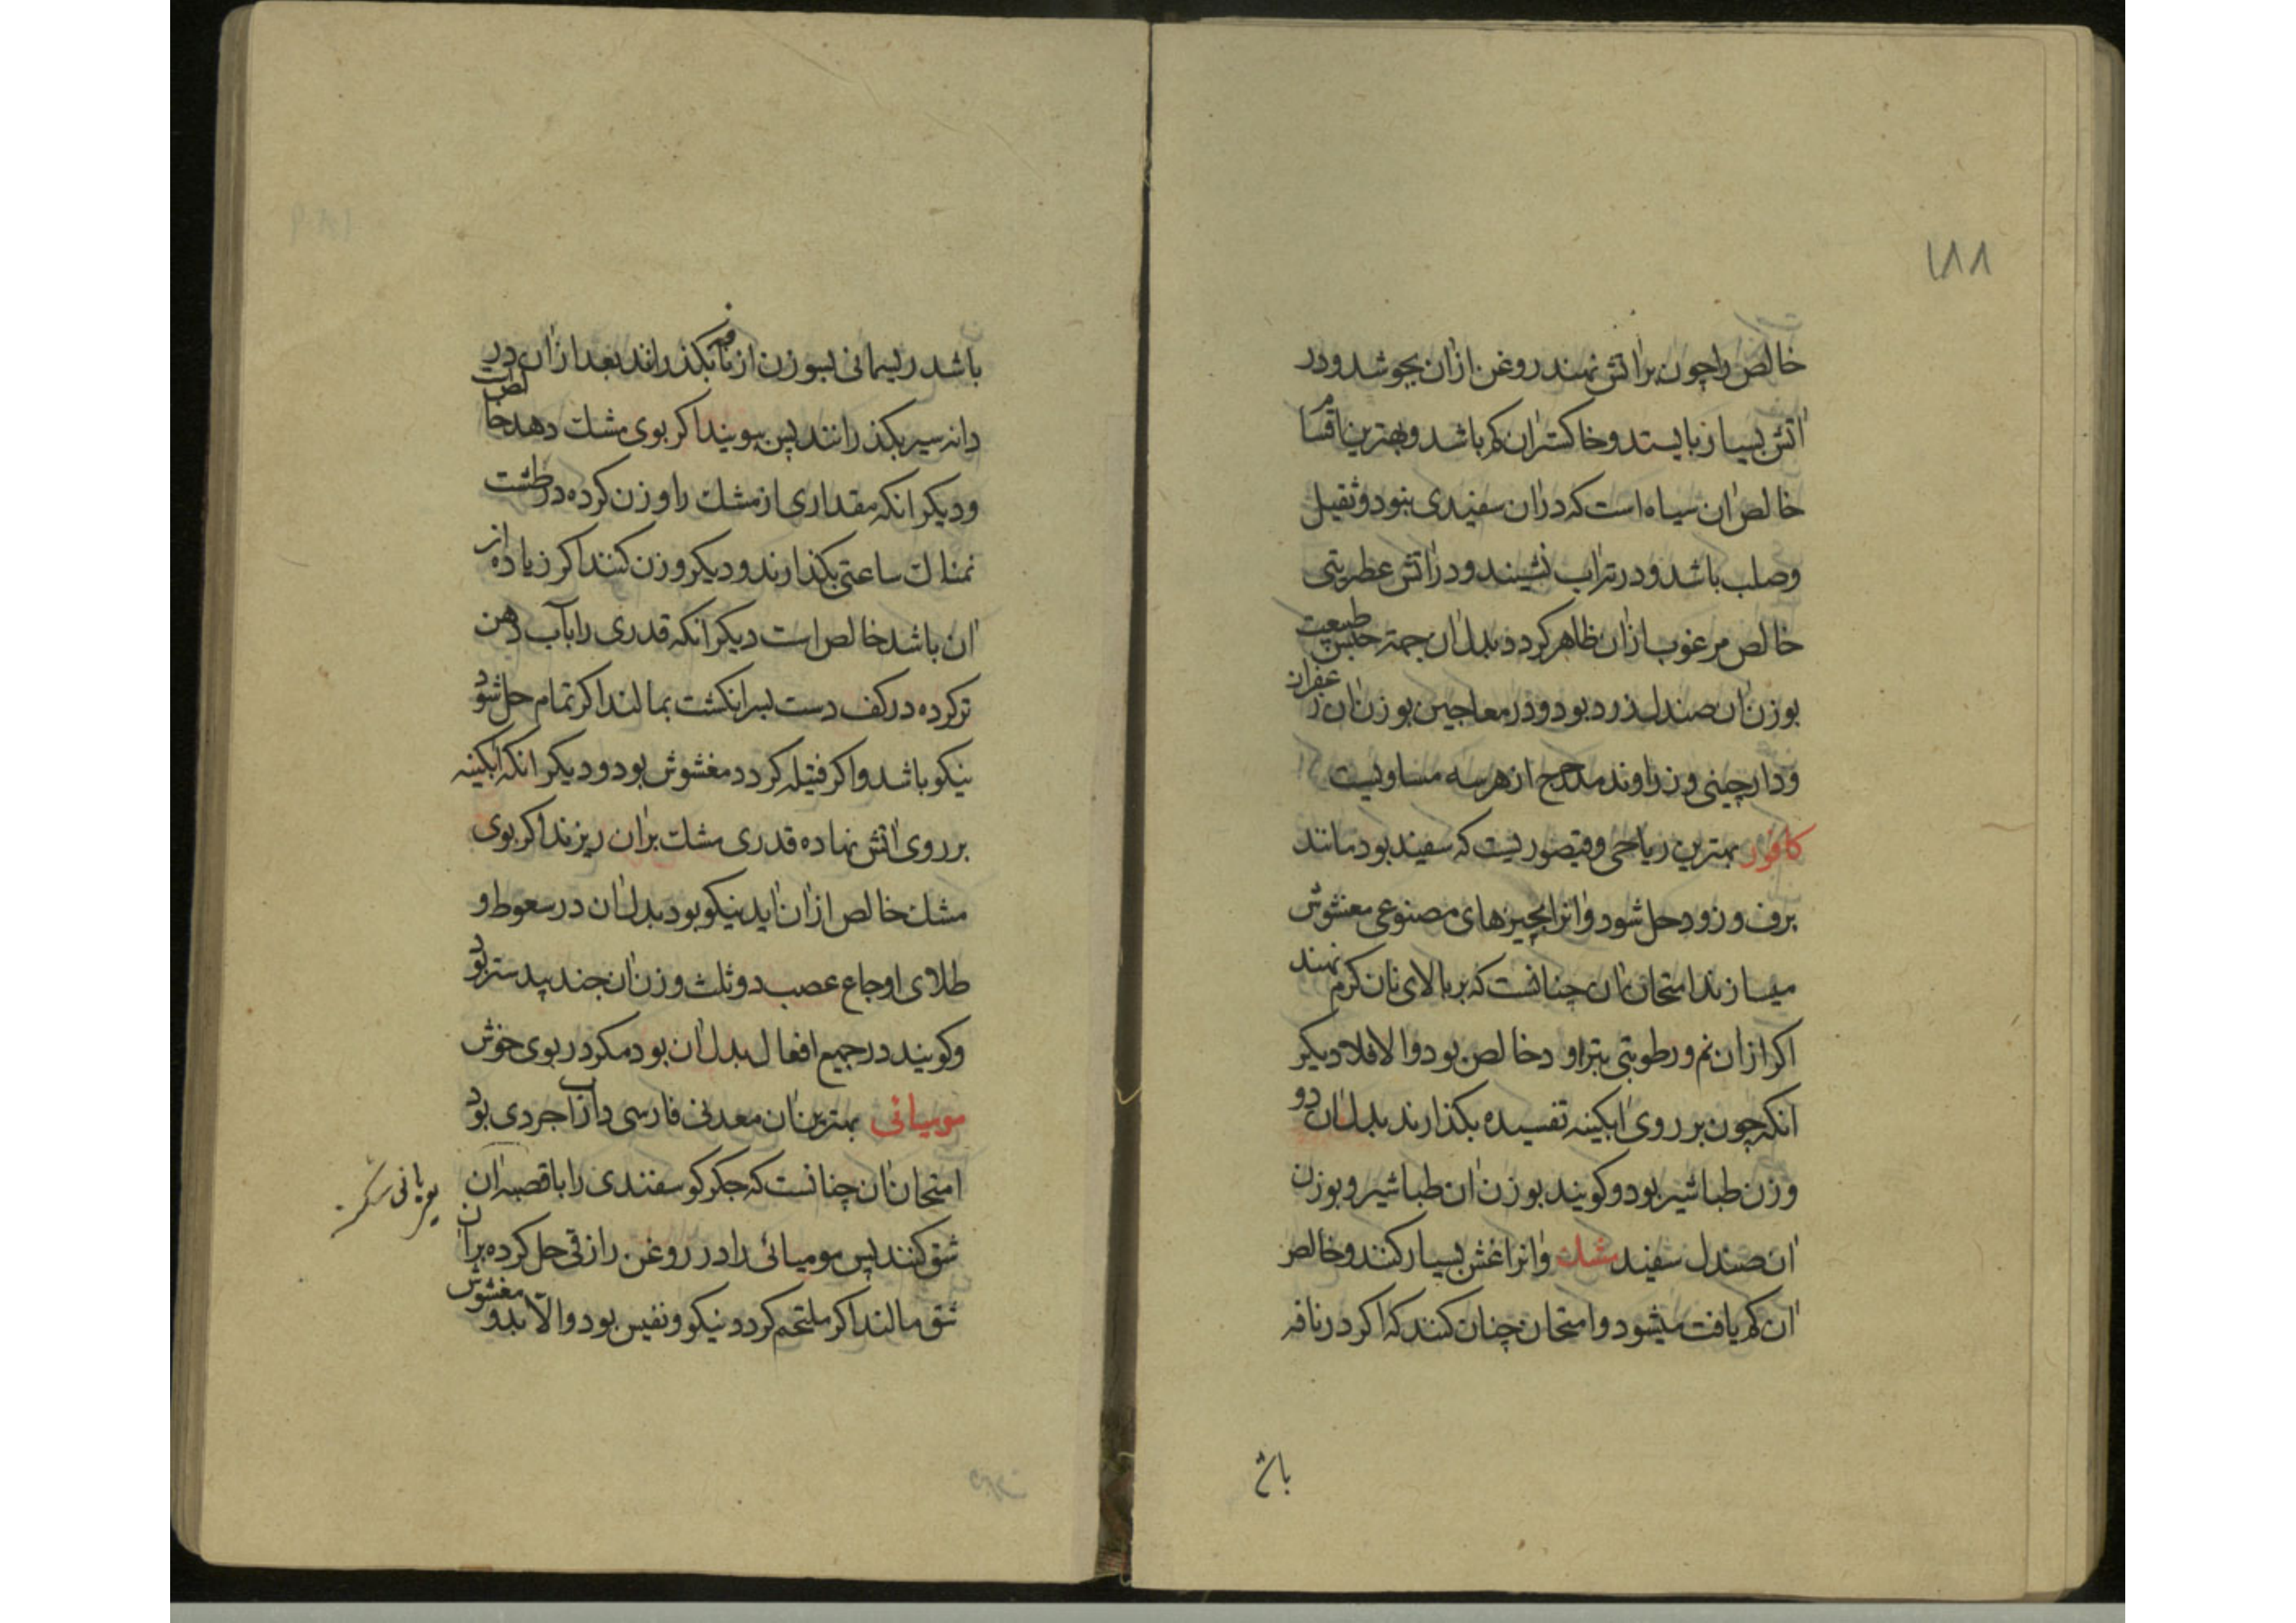 ١٨٨
خالص را چون بر اتش نهند روغن ازان بجوشد و در
اتش بسیار بایستد و خاکستر ان کم باشد و بهترین اقسام
خالص ان سیاه است که در ان سفیدی نبود و ثقیل
و صلب باشد و در تر اب نشیند و در اتش عطریتی
خالص مرغوب ازان ظاهر کردد و بدل ان جهة حبس طبیعت
بوزن ان صندل زرد بود و در معاجین بوزن ان زعفران
و دارچینی و زراوند مدحرج از هر سه مساویست
کافور بهترین ریاحی و قیصوریست که سفید بود مانند
برف و زود حل شود و انرا بچیزهای مصنوعی مغشوش
میسازند امتحان ان چنانست که بر بالای نان کرم نهند
اکر ازان نم و رطوبتی بتراود خالص بود والا فلا دیکر
انکه چون بر روی ابکینه تفسیده بکذارند بدل ان دو
وزن طباشیر بود و کویند بوزن ان طباشیر و بوزن
ان صندل سفید مشك و انرا غش بسیار کنند و خالص
ان کم یافت میشود و امتحان چنان کنند که اکر در نافه
باش
باشد ریسمانی بسوزن از نافه بکذرانند بعد ازان در
دانه سیر بکذرانند پس ببویند اکر بوی مشك دهد خالص است
و دیکر انکه مقداری از مشك را وزن کرده در طشت
نمناك ساعتی بکذارند و دیکر وزن کنند اکر زیاده از
ان باشد خالص است دیکر انکه قدری را بآب دهن
تر کرده در کف دست بسر انکشت بمالند اکر تمام حل شود
نیکو باشد و اکر فتیله کردد مغشوش بود و دیکر انکه ابکینه
بر روی اتش نهاده قدری مشك بران ریزند اکر بوی
مشك خالص ازان اید نیکو بود بدل ان در سعوط و
طلای اوجاع عصب دو ثلث وزن ان جند بیدستر بود
و کویند در جمیع افعال بدل ان بود مکر در بوی خوش
مومیائی بهترین ان معدنی فارسی دارابجردی بود
امتحان ان چنانست که جکر کوسفندی را با قصبه ان
شق کنند پس مومیائی را در روغن رازقی حل کرده بران
شق مالند اکر ملتحم کردد نیکو و نفیس بود والا بد و مغشوش